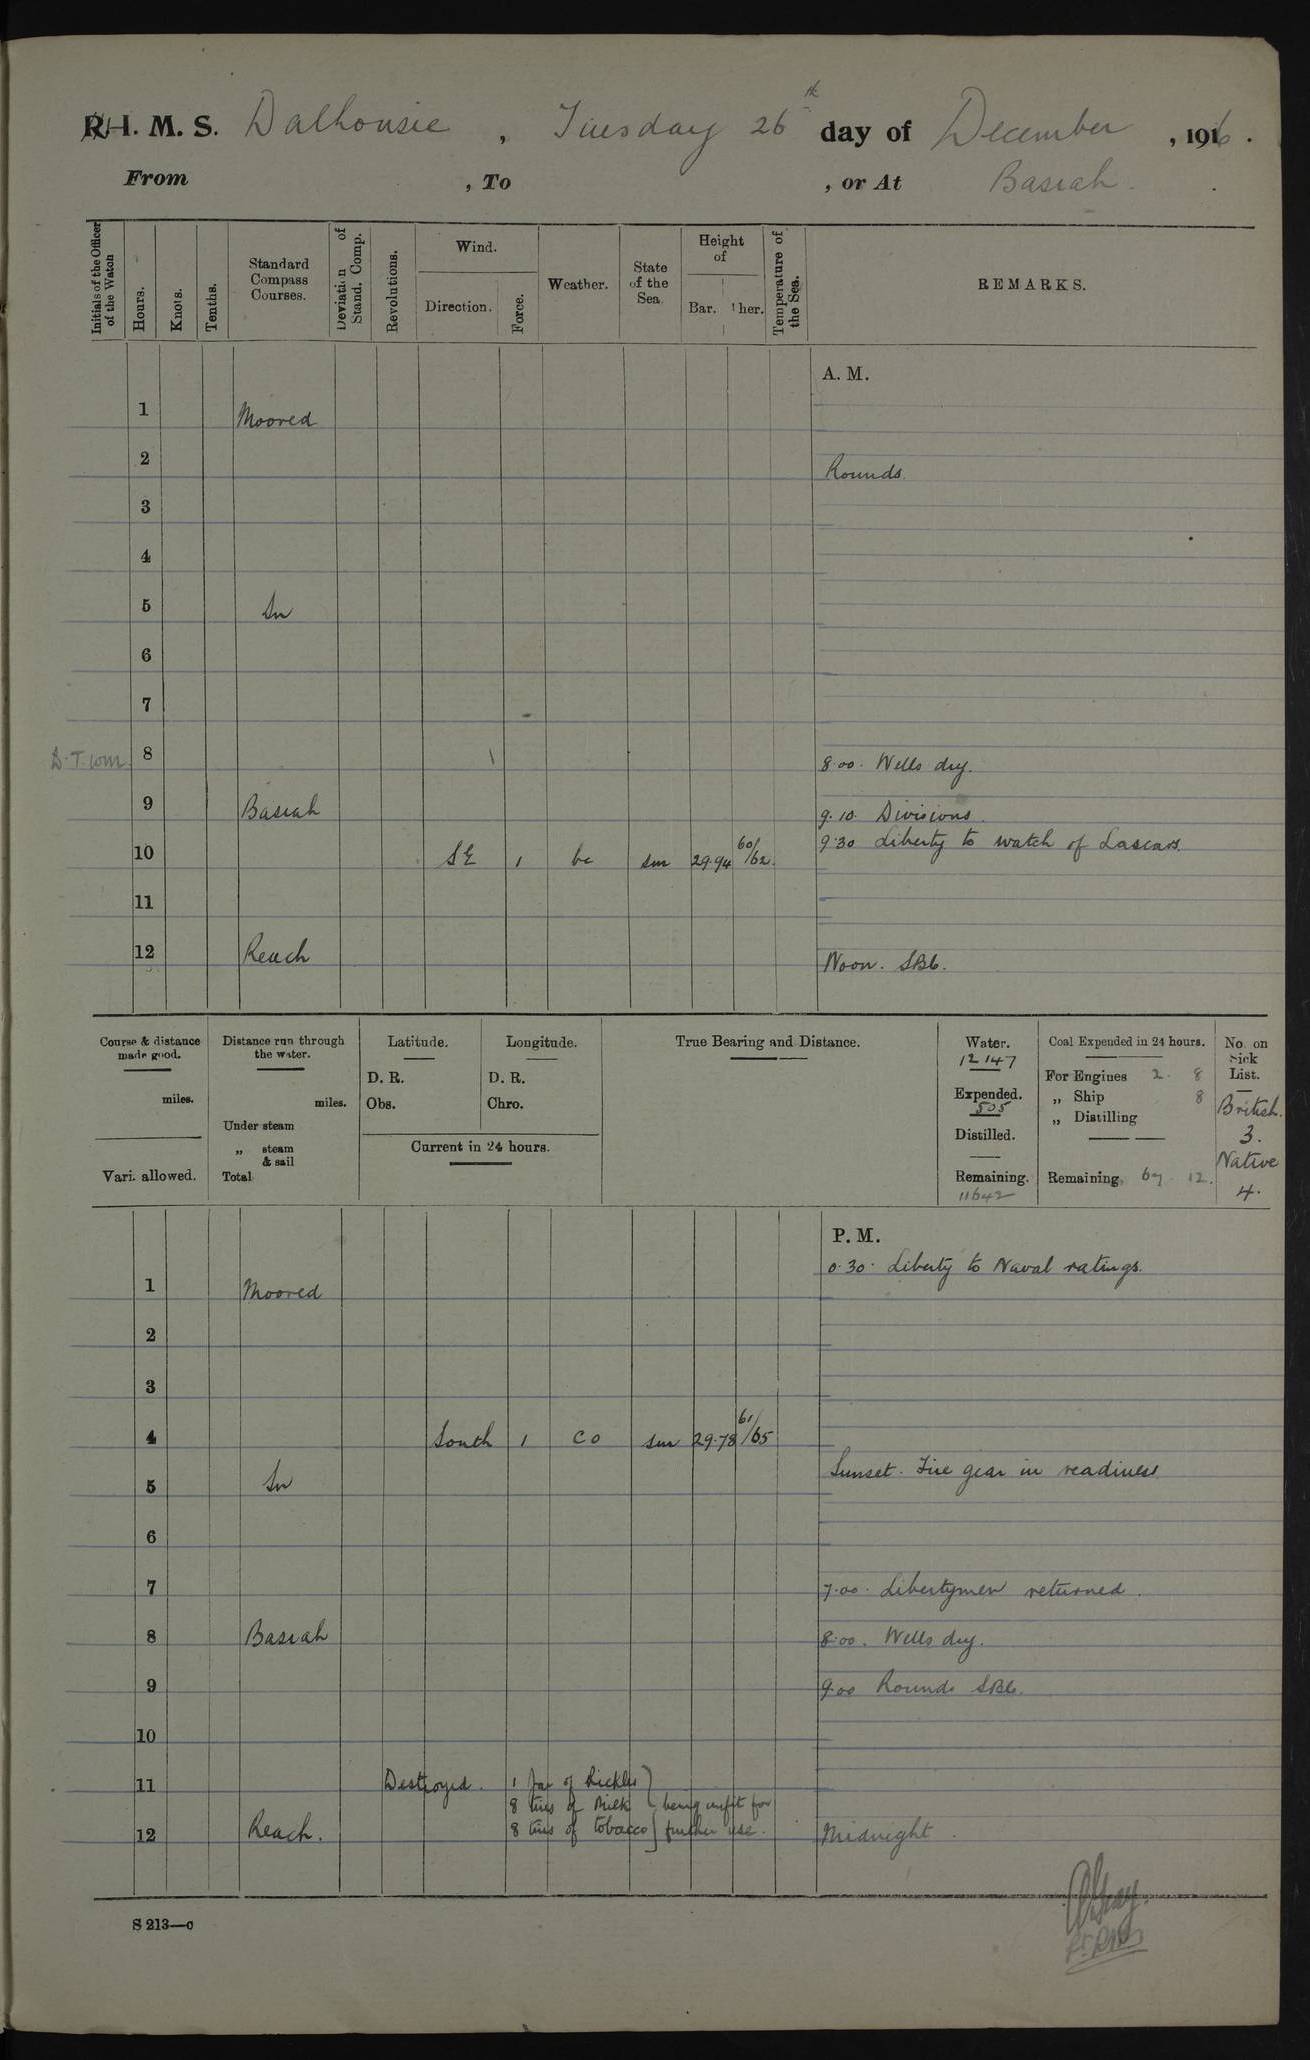 R.H. M. S. Dalhousie, Tuesday 26th day of December, 1916.
From , To , or At Basrah.
Initials of the Officer of the Watch
Hours.
Knots.
Tenths.
Standard Compass Courses.
Deviation of Stand. Comp.
Revolutions.
Wind.
Direction. Force.
Weather.
State of the Sea.
Height of
Bar. Ther.
Temperature of the Sea.
REMARKS.
A. M.
1 Moored
2 Rounds.
3
4
5 In
6
7
8 8.00. Wells dry.
9 Basrah 9.10. Divisions.
9.30 Liberty to watch of Lascars.
10 SE 1 bc sm 29.94 60/62.
11
12 Reach Noon.
Course & distance made good.
miles.
Vari. allowed.
Distance run through the water.
miles.
Under steam
„ steam & sail
Total
Latitude.
D. R.
Obs.
Longitude.
D. R.
Chro.
Current in 24 hours.
True Bearing and Distance.
Water.
12147
Expended.
505
Distilled.
Remaining.
11642
Coal Expended in 24 hours.
For Engines 2. 8
„ Ship 8
„ Distilling
Remaining. 67 12.
No. on Sick List.
British.
3.
Native
4.
P. M.
0.30. Liberty to Naval ratings.
1 Moored
2
3
4 South 1 co sm 29.78 61/65
Sunset. Fire gear in readiness
5 In
6
7 7.00. Libertymen returned.
8 Basrah 8.00. Wells dry.
9 9.00 Rounds
10
11 Destroyed. 1 Jar of Pickles
8 tins of Milk being unfit for
12 Reach. 8 tins of tobacco further use. Midnight.
S 213—c